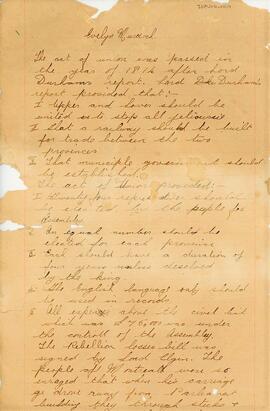 Evelyn
The act of union was passed in
the year of 1842 after Lord
Durhams report. Lord Durham's
report provided that:-
I Upper and lower should be
united so to stop all jelousies
I that a railway should be built
for trade between the two
provinces
I That municiple government should
be established.
The act of Union provided:-
I Twenty four should
be by the people for
I An equal number should be
elected for each province
I Each should have a duration of
four years unless dissolved
by the king
I The English language only should
be used in records
I All expenses about the civil list
which was £75,000 was under
the controll of the assembly
The Rebellion losses bill was
signed by Lord Elgin. The
people of Montreal were so
enraged that when his carriage
drove away from Parliament
building they through sticks &